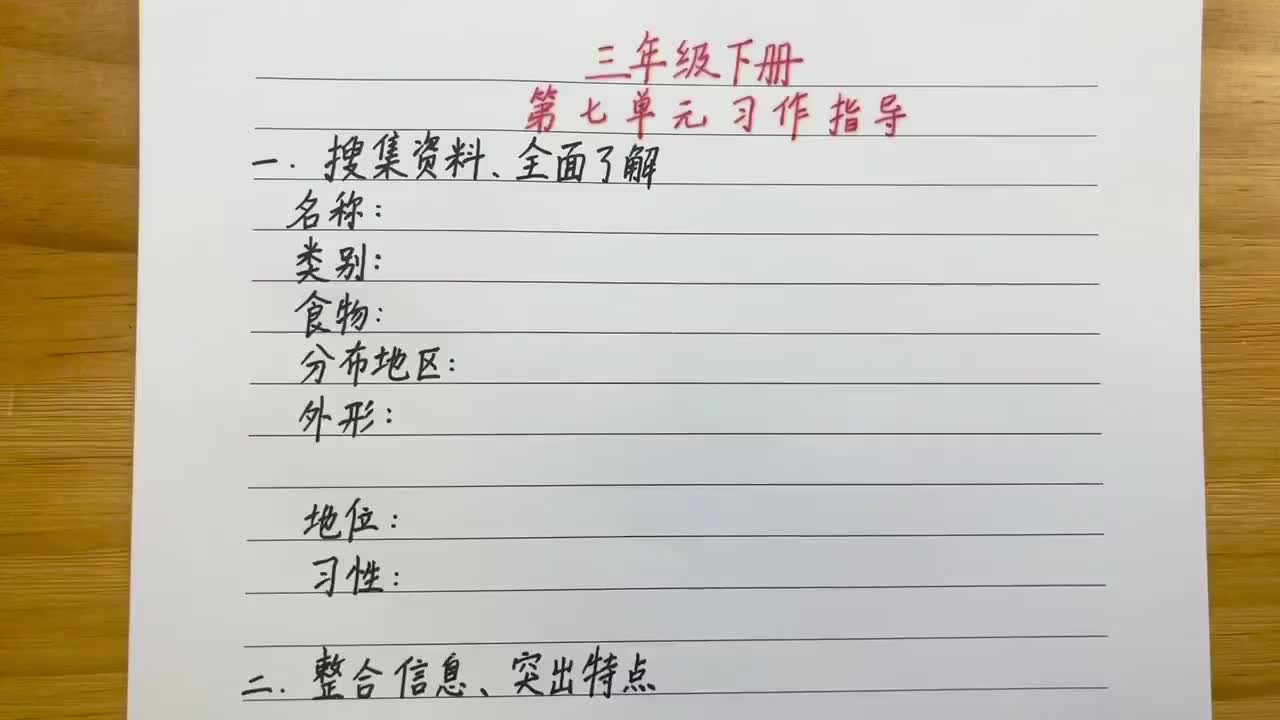 三年级下册
第七单元习作指导
一.搜集资料、全面了解
名称:
类别:
食物:
分布地区:
外形:
地位:
习性:
二.整合信息、突出特点